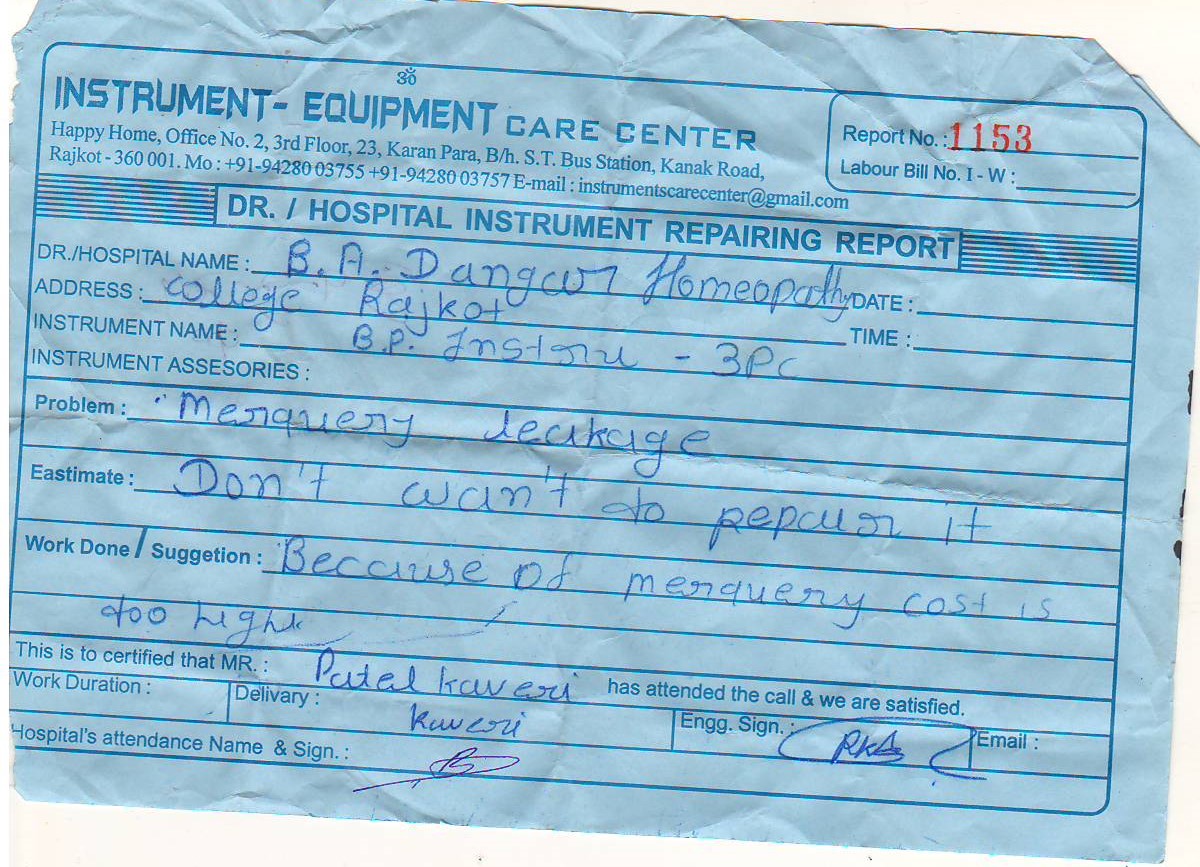 ॐ
INSTRUMENT- EQUIPMENT CARE CENTER
Happy Home, Office No. 2, 3rd Floor, 23, Karan Para, B/h. S.T. Bus Station, Kanak Road,
Rajkot - 360 001. Mo : +91-94280 03755 +91-94280 03757 E-mail : instrumentscarecenter@gmail.com
Report No. : 1153
Labour Bill No. I - W :
DR. / HOSPITAL INSTRUMENT REPAIRING REPORT
DR./HOSPITAL NAME : B.A. Dangar Homeopathy DATE :
ADDRESS : college Rajkot TIME :
INSTRUMENT NAME : B.P. Instru - 3Pc
INSTRUMENT ASSESORIES :
Problem : Merquery leakage
Eastimate : Don't wan't to pepair it
Work Done / Suggetion : Because of merquery cost is
too high
This is to certified that MR. : Patel kaveri has attended the call & we are satisfied.
Work Duration : Delivary : kaveri Engg. Sign. : RKB Email :
Hospital's attendance Name & Sign. :